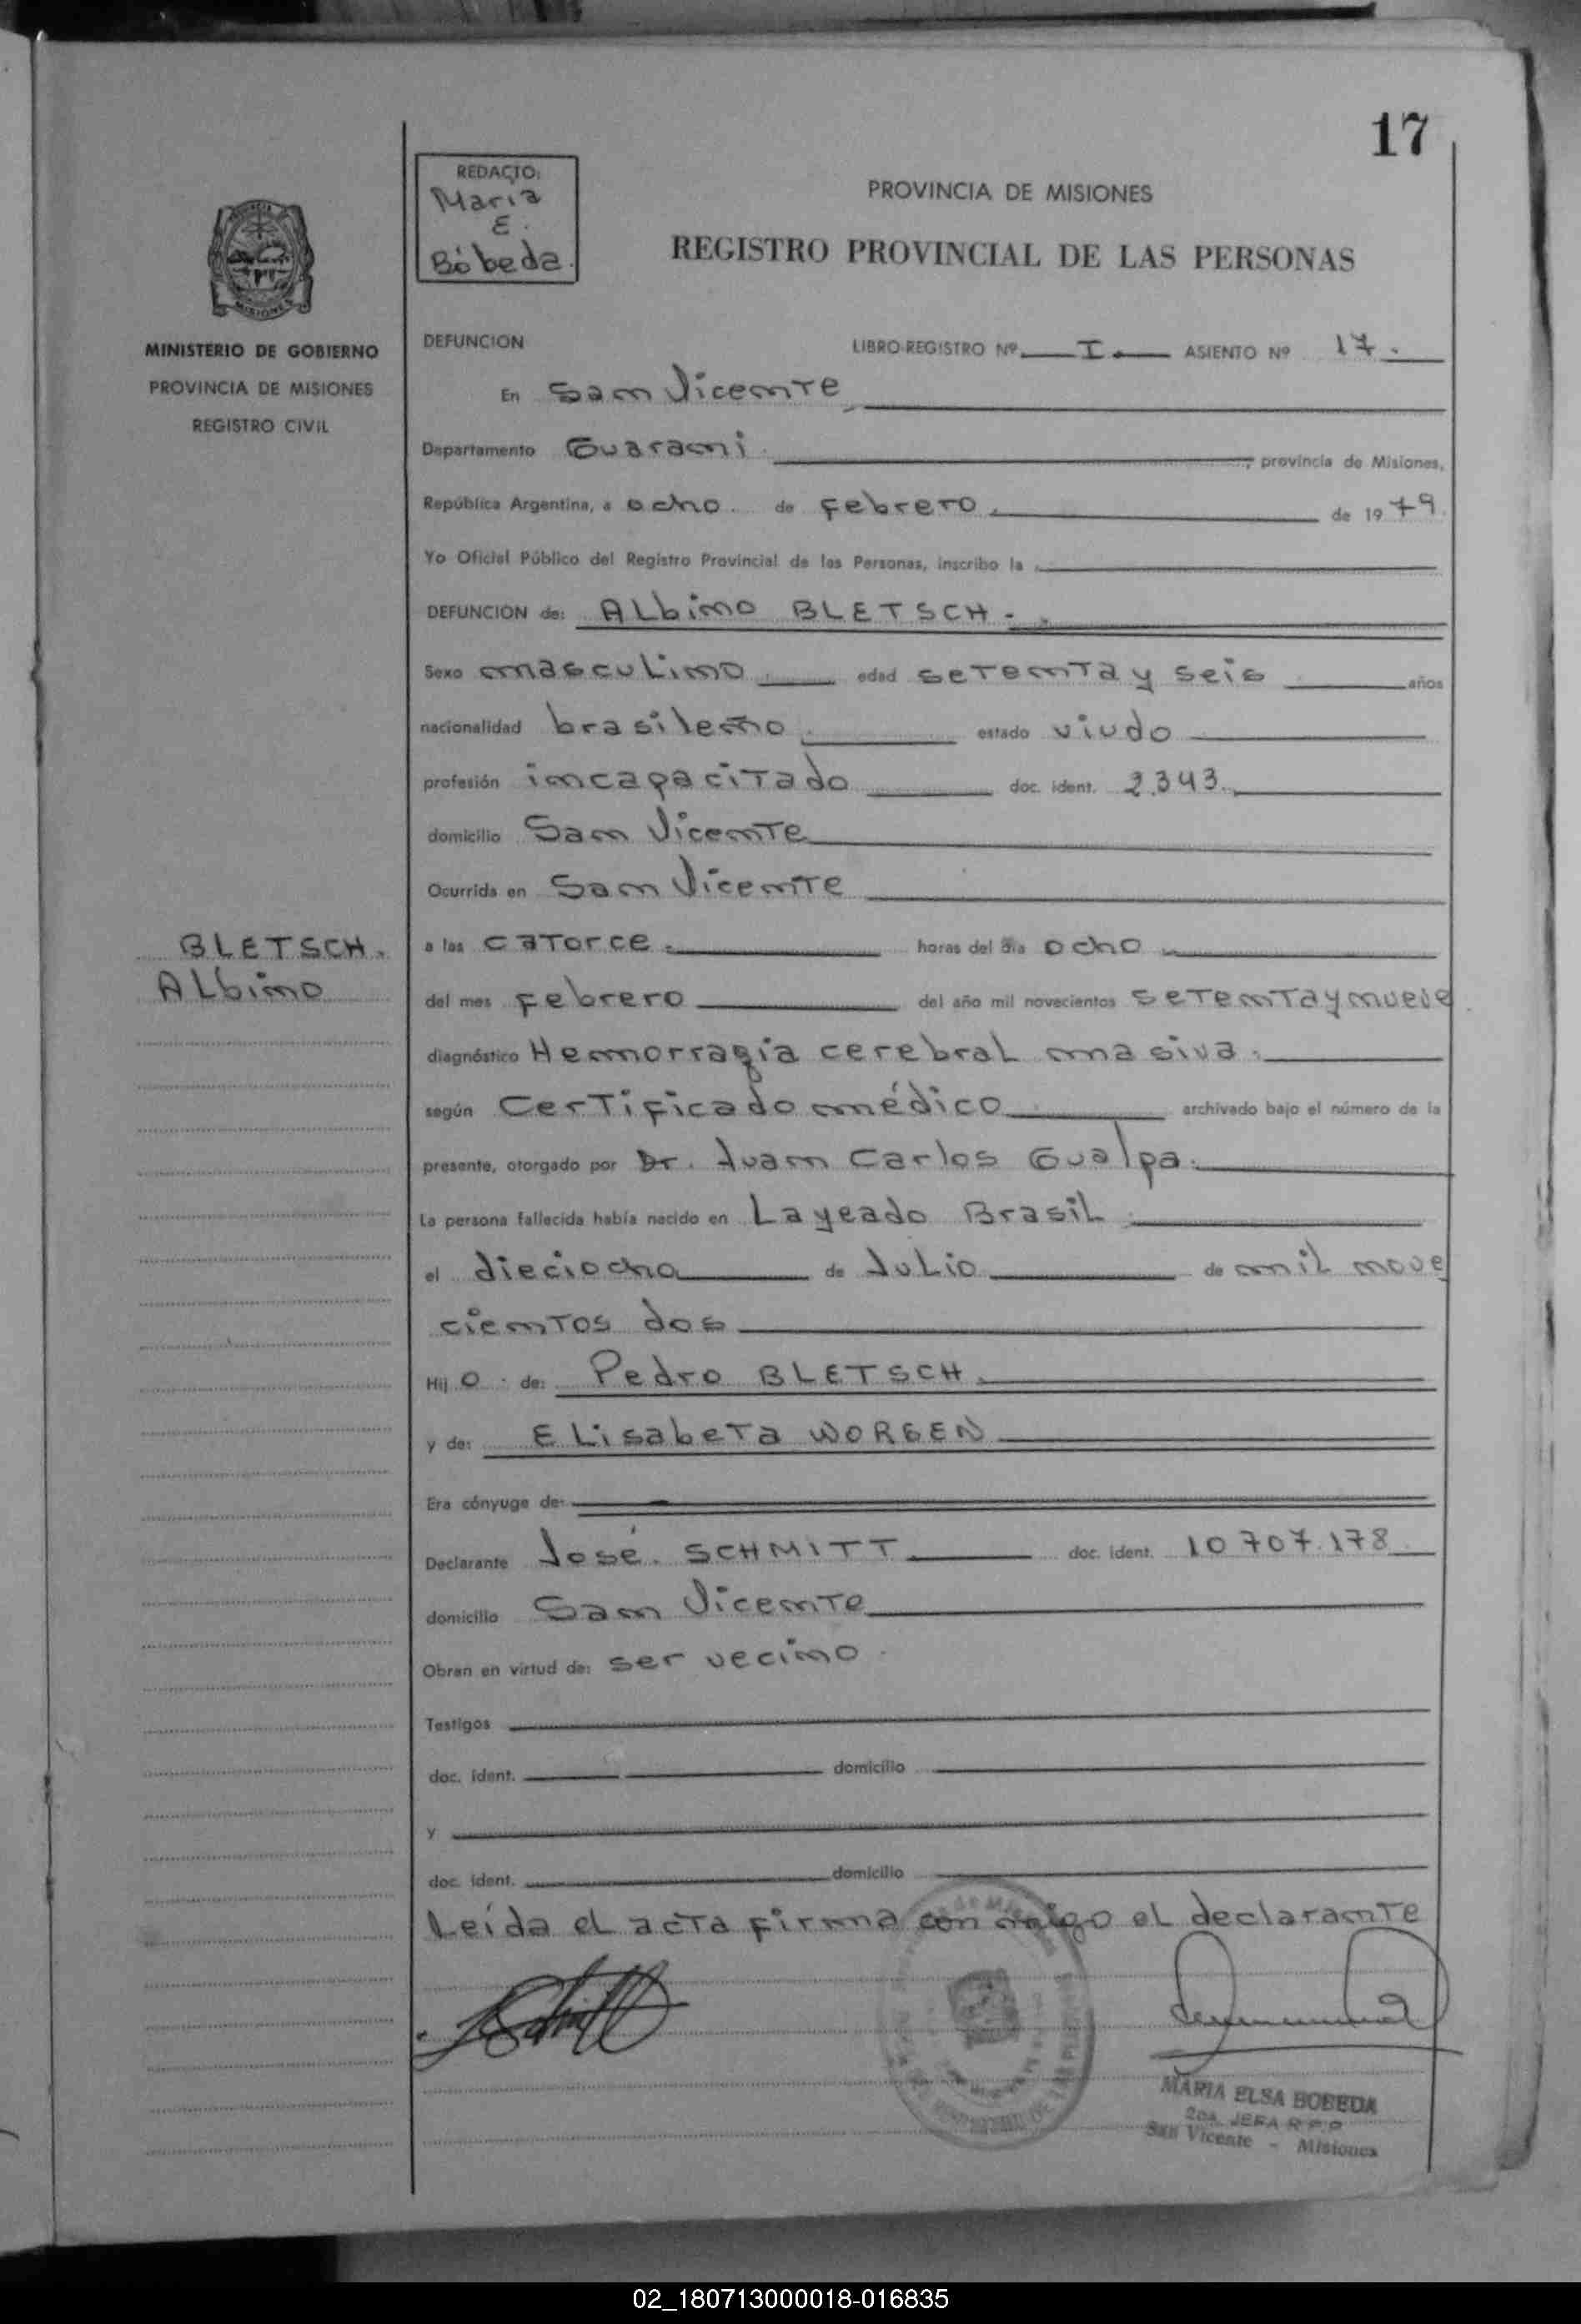 17
REDACTO:
Maria
E.
Bóbeda.
PROVINCIA DE MISIONES
REGISTRO PROVINCIAL DE LAS PERSONAS
MISIONES
MINISTERIO DE GOBIERNO
PROVINCIA DE MISIONES
REGISTRO CIVIL
DEFUNCION LIBRO-REGISTRO Nº I. ASIENTO Nº 17.
En San Vicente
Departamento Guarani. , provincia de Misiones,
República Argentina, a ocho. de Febrero. de 1979.
Yo Oficial Público del Registro Provincial de las Personas, inscribo la
DEFUNCION de: ALbino BLETSCH.-
Sexo masculino edad setenta y seis años
nacionalidad brasileño. estado viudo
profesión incapacitado doc. ident. 2.343.
domicilio San Vicente
Ocurrida en San Vicente
BLETSCH.
ALbino
a las catorce. horas del día ocho
del mes Febrero del año mil novecientos setenta y nueve
diagnóstico Hemorragia cerebral masiva.
según Certificado médico archivado bajo el número de la
presente, otorgado por Dr. Juan Carlos Gualpa.
La persona fallecida había nacido en Layeado Brasil
el dieciocho de Julio de mil nove
cientos dos
Hij o de: Pedro BLETSCH.
y de: Elisabeta WORGEN
Era cónyuge de:
Declarante José. SCHMITT doc. ident. 10 707.178
domicilio San Vicente
Obran en virtud de: ser vecino.
Testigos
doc. ident. domicilio
y
doc. ident. domicilio
Leída el acta firma con migo el declarante
MARIA ELSA BOBEDA
2da. JEFA R.P.P
San Vicente - Misiones
02_180713000018-016835